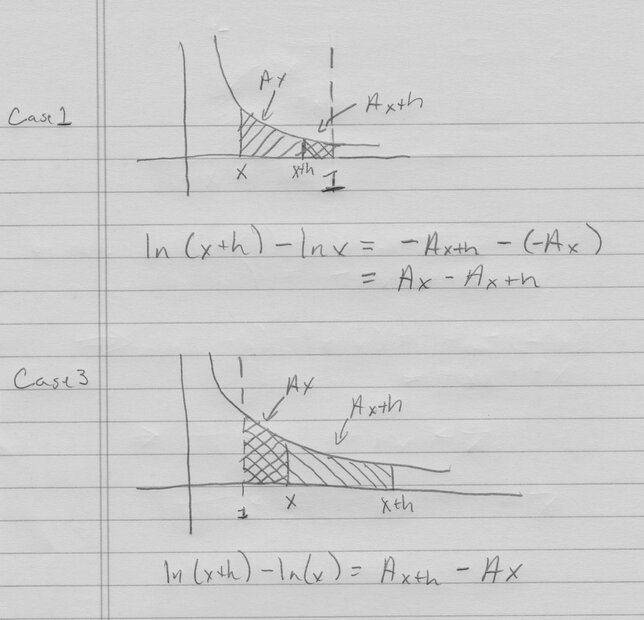 Case 1
Ax
Ax+h
x
x+h
1
ln (x+h) - ln x = -Ax+h - (-Ax)
= Ax - Ax+h
Case 3
Ax
Ax+h
1
x
x+h
ln (x+h) - ln(x) = Ax+h - Ax